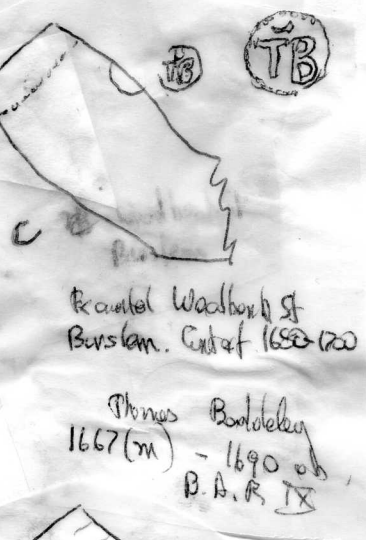 TB
TB
C
Woodbank St
Burslem. Context 1680-1700
Thomas Baddeley
1667 (m) - 1690 ob
B.A.R IX